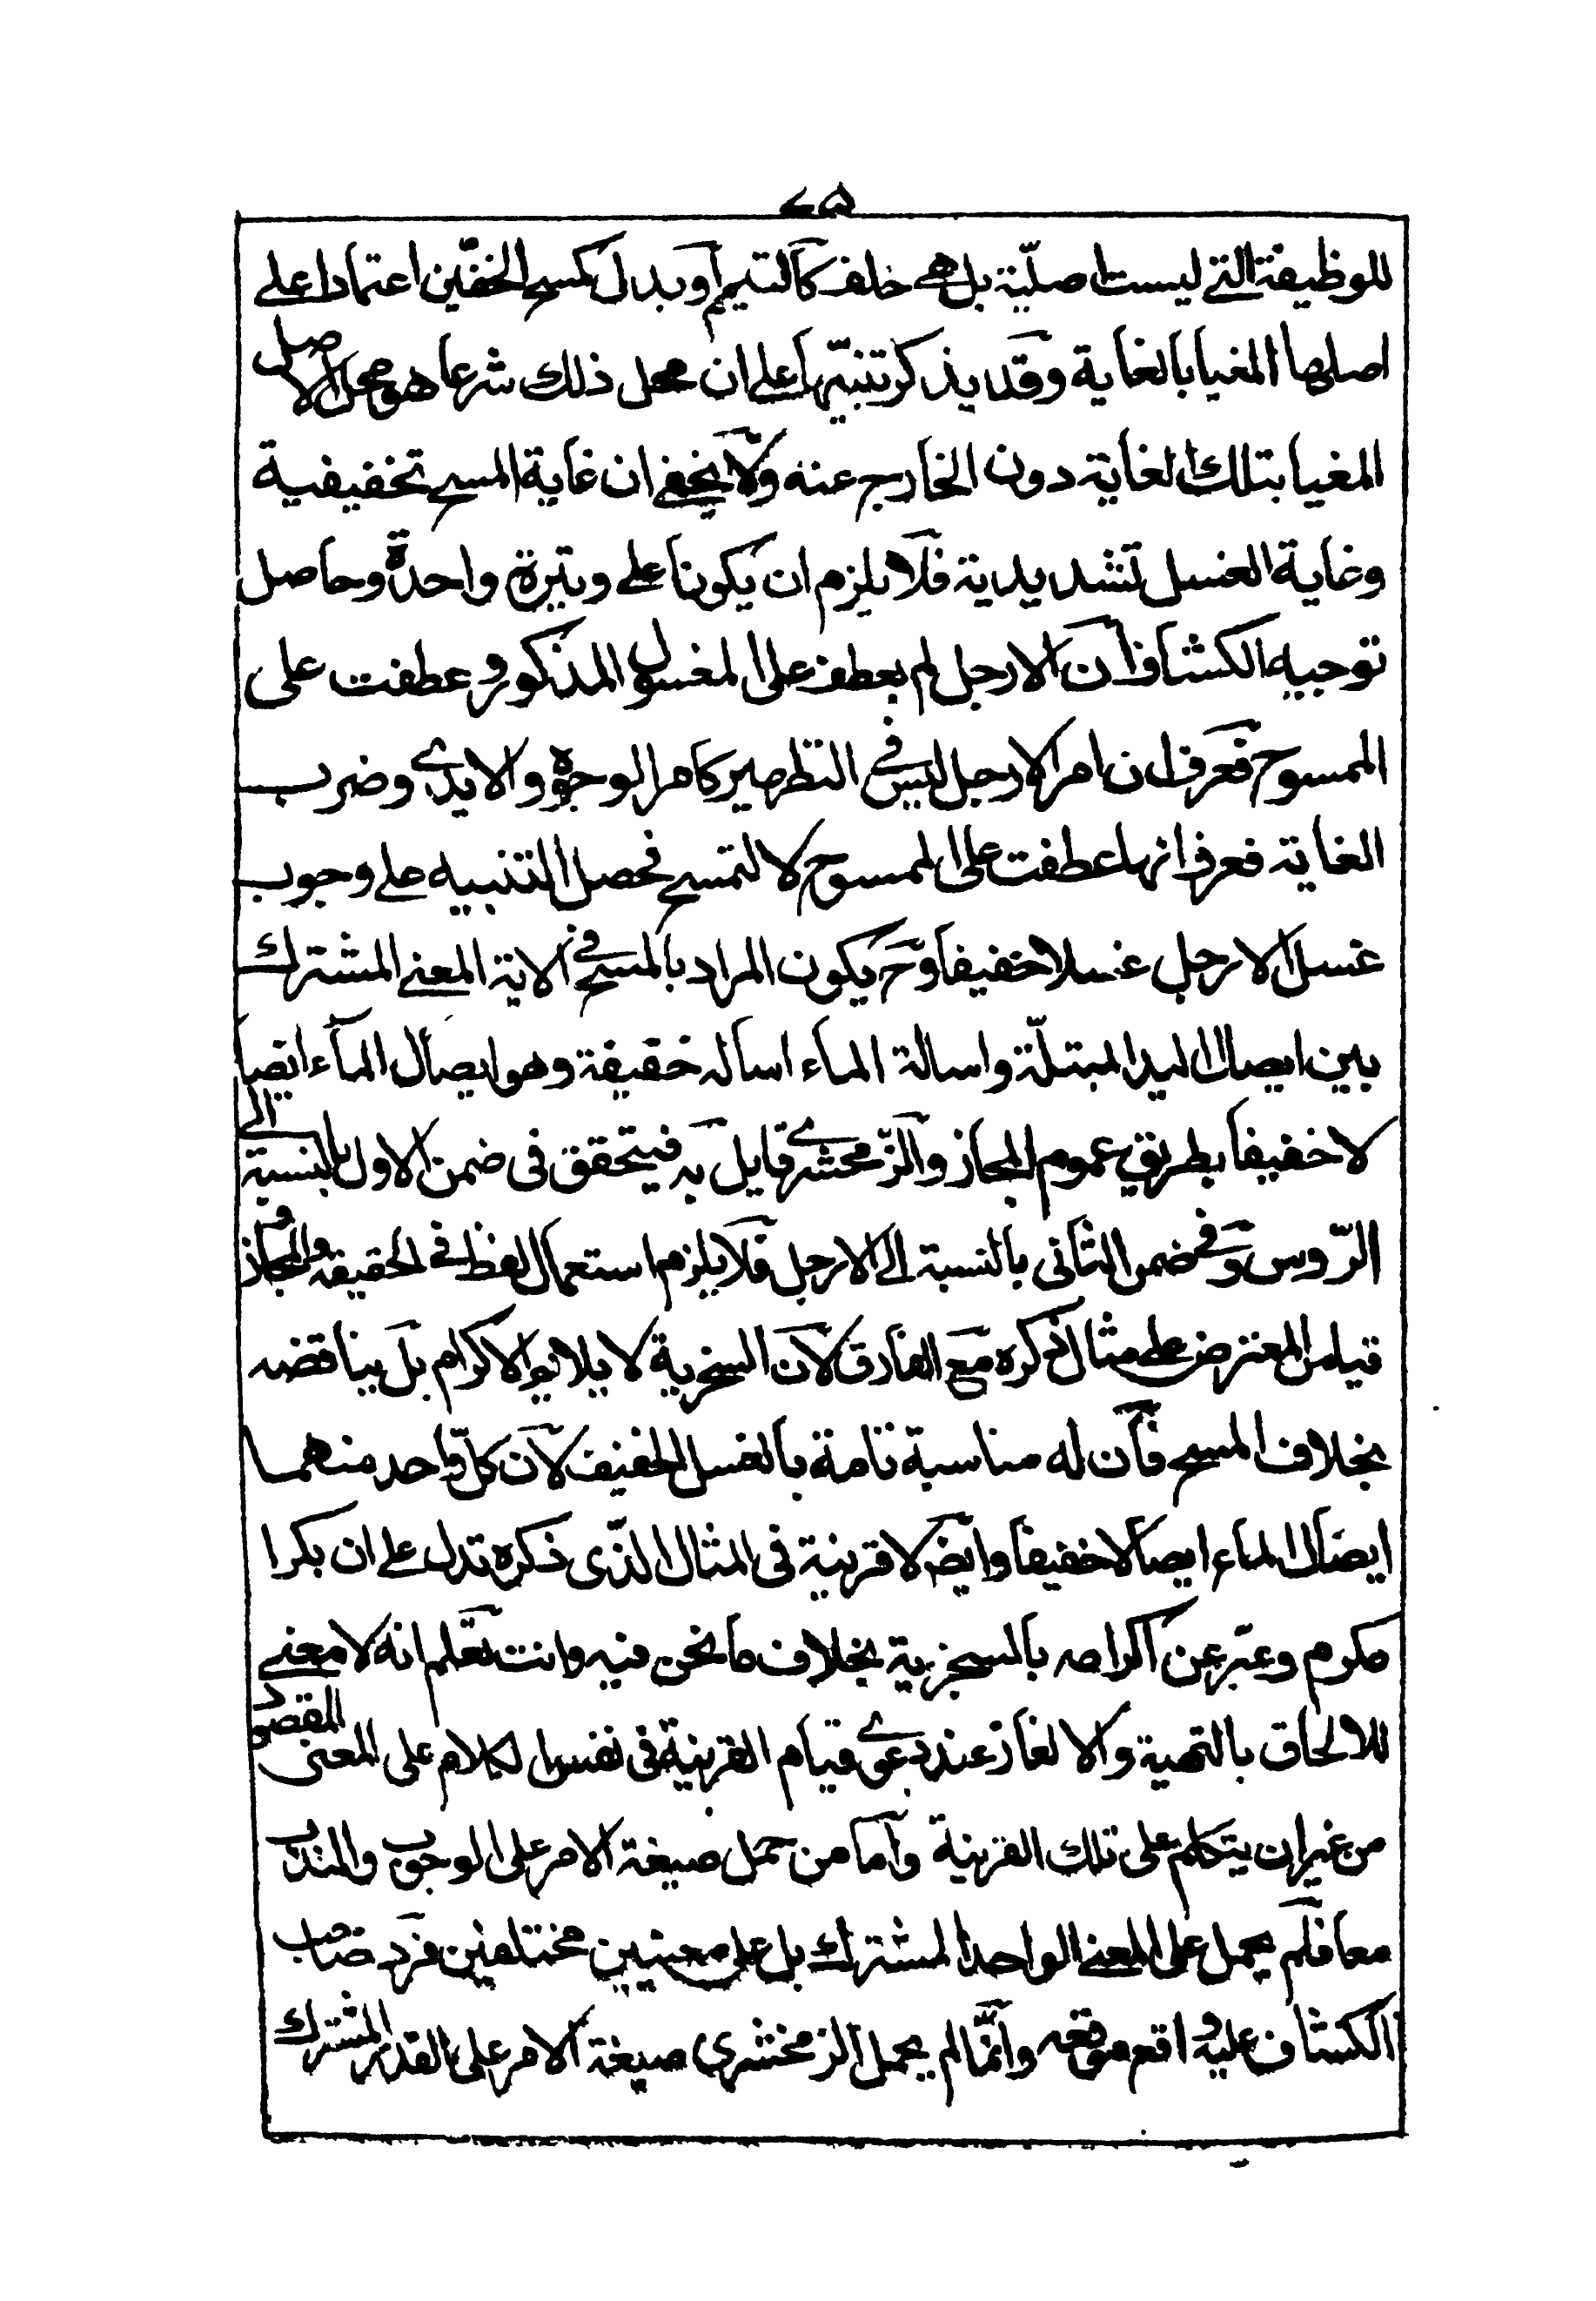 ٧٥
للوظيفة التي ليست اصليّة بل هي خلف كالتيمم او بدل كمسح الخفّين اعتمادا على
اصلها المغيا بالغاية وقد يذكر تنبيها على ان محل ذلك شرعا هو محل الاصل
المغيا بتلك الغاية دون الخارج عنه ولا يخفى ان غاية المسح تخفيفية
وغاية الغسل تشديدية فلا يلزم ان يكونا على وتيرة واحدة وحاصل
توجيه الكشاف ان الارجل لم يعطف على المغسول المذكور وعطفت على
الممسوح فعرف ان امر الارجل ليس في التطهير كامر الوجوه والايدي وضرب
الغاية فعرف انها عطفت على الممسوح لا لتمسح فحصل التنبيه على وجوب
غسل الارجل غسلا خفيفا وح يكون المراد بالمسح في الاية المعنى المشترك
بين ايصال اليد المبتلّة واسالة الماء اسالة خفيفة وهو ايصال الماء ايصا
لا خفيفا بطريق عموم المجاز والزّمخشري قايل به فيتحقق فى ضمن الاول بالنسبة الى
الرّوس وفي ضمن الثانى بالنسبة الى الارجل فلا يلزم استعمال لفظ في الحقيقة والمجاز
قياس المعترض على مثال ذكره مع الفارق لان السخرية لا يلايم الاكرام بل يناقضه
بخلاف المسح فان له مناسبة تامة بالغسل الخفيف لان كلّ واحد منهما
ايصال الماء ايصالا خفيفا وايض لا قرينة فى المثال الذّى ذكره تدل على ان بكرا
مكرم وعبّر عن اكرامه بالسخرية بخلاف ما نحن فيه وانت تعلم انه لا معنى
للالحاق بالتعمية والالغاز عند دعوى قيام القرينة فى نفس الكلام على المعنى المقصود
من غير ان يتكلم على تلك القرينة واما من حمل صيغة الامر على الوجوب والندب
معا فلم يحمل على المعنى الواحد المشترك بل على معنيين مختلفين فرد صاحب
الكشاف عليه واقع موقعه وانّما لم يحمل الزمخشري صيغة الامر على القدر المشترك